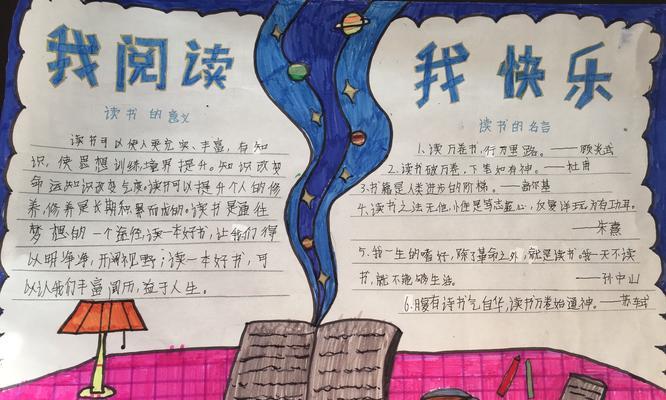 我阅读
我快乐
读书的意义
读书可以使人更充实、丰富,有知
识,使思想训练,境界提升。知识改变
命运,知识改变气质。读书可以提升个人的修
养,修养是长期积累而成的。读书是通往
梦想的一个途径,读一本好书,让我们得
以明净净,开阔视野;读一本好书,可
以认我们丰富阅历,益于人生。
读书的名言
1、读万卷书,行万里路。——顾炎武
2、读书破万卷,下笔如有神。——杜甫
3、书籍是人类进步的阶梯。——高尔基
4、读书之法无他,惟是笃志虚心,反复详玩,为有功耳。
——朱熹
5、我一生的嗜好,除了革命之外,就是读书。我一天不读
书,就不能够生活。——孙中山
6、腹有诗书气自华,读书万卷始通神。——苏轼